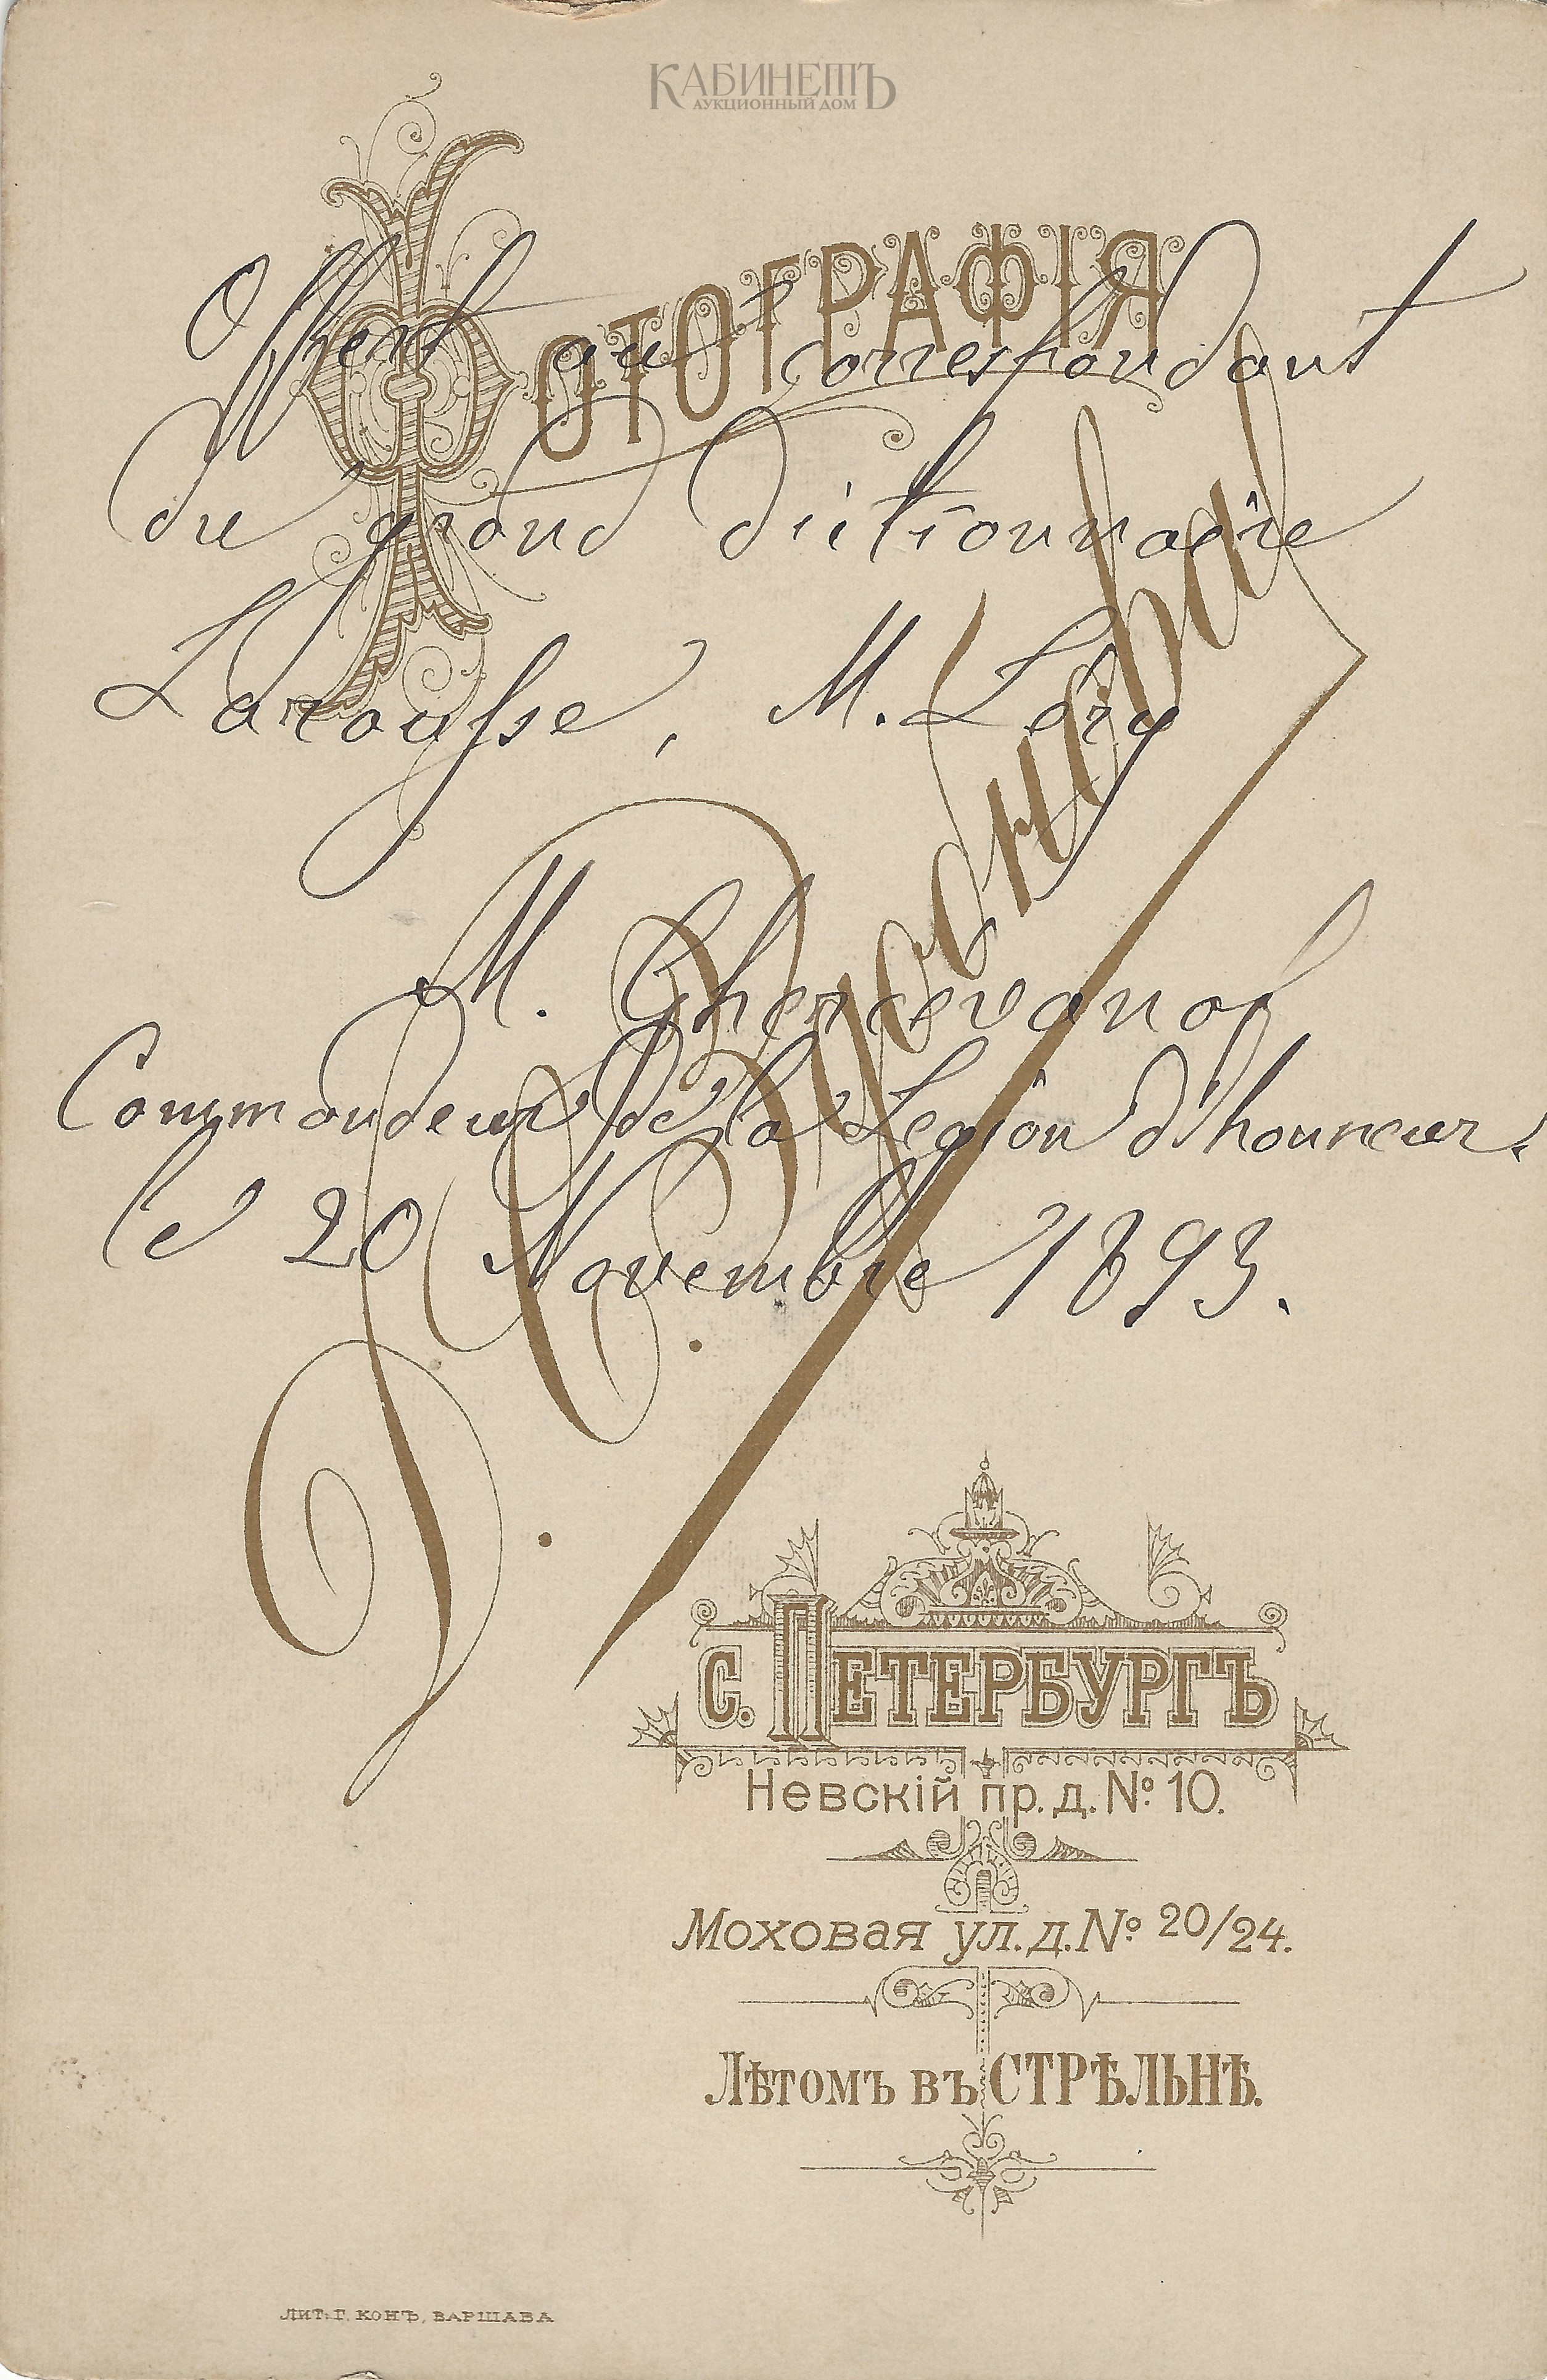 КАБИНЕТЪ
АУКЦИОННЫЙ ДОМ
ФОТОГРАФІЯ
Offert au correspondant
du grand dictionnaire
Larousse, M. Léry
M. Ghercevanof
Commandeur de la Legion d'honneur.
le 20 Novembre 1893.
С. ПЕТЕРБУРГЪ
Невскій пр. д. № 10.
Моховая ул. д. № 20/24.
Лѣтомъ въ СТРѢЛЬНѢ.
ЛИТ. Г. КОНЪ, ВАРШАВА